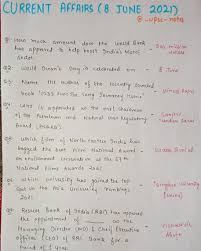 CURRENT AFFAIRS (8 JUNE 2021)
@_upsc_notes
Q1 How much amount does the World Bank
has approved to help boost India's MSME
Sector
- 500 million
Q2. World Ocean's Day is celebrated on - 8 June
Q3. Name the author of the recently
book
- Vinod Kapri
Q4. has appointed as the next chairman
of the Petroleum and Natural Gas Regulatory
Board (PNGRB)
- Sanjeev
Q5 Which film of North eastern India has
bagged the best Film National Award
on environment conservation at the 67th
National Films Awards
Q6. Which university has gained the top
out in the Asia University Rankings
2021
- Tsinghua University
(China)
Q7. Reserve Bank of India (RBI) has approved
the appointment of as the
Managing Director (MD) & Chief Executive
Officer (CEO) of RBL Bank for a
Period of 1 year
- Vishwavir
Ahuja